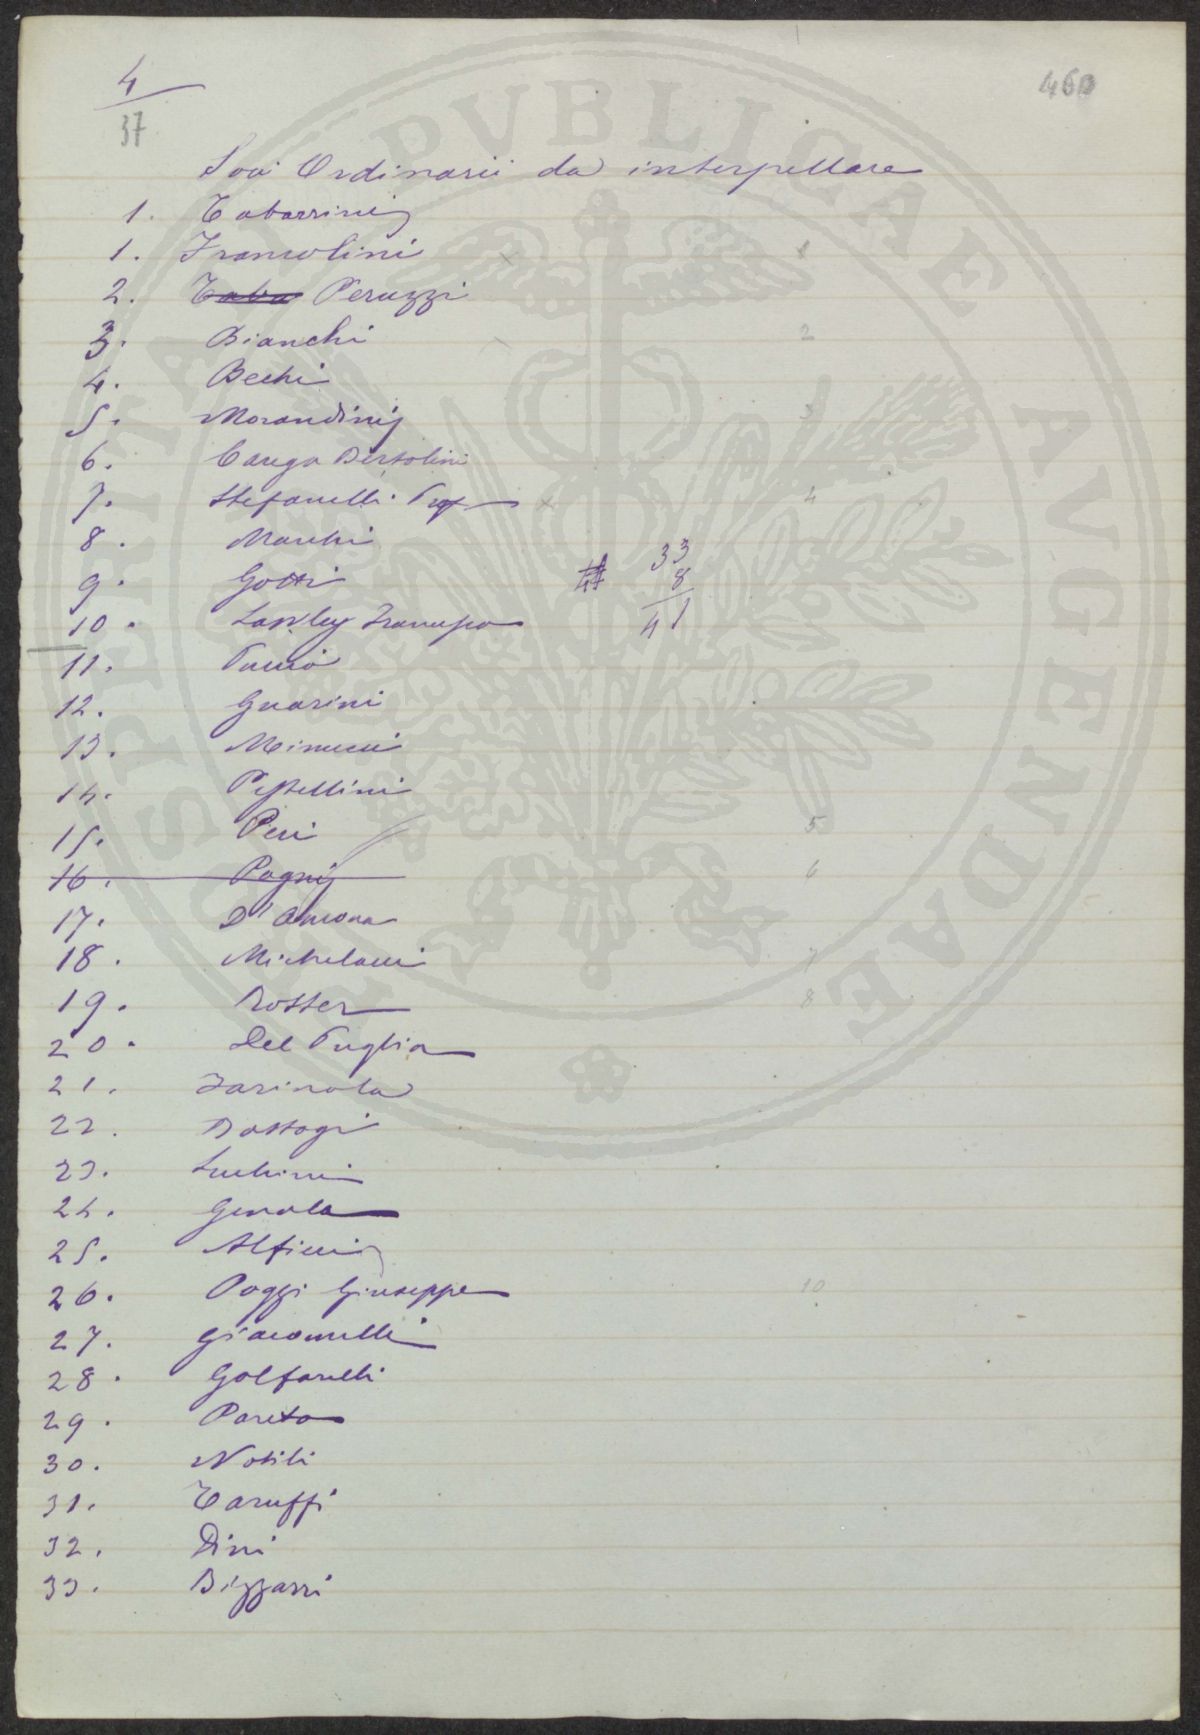 4
37
460
Soci Ordinarii da interpellare
1. Tabarrini
1. Francolini × 1
2. Taba Peruzzi
3. Bianchi 2
4. Bechi
5. Morandini 3
6. Carega Bertolini
7. Stefanelli Prof × 4
8. Marchi
9. Gotti # 33
8
10. Lawley Francesco 41
11. Pucci
12. Guarini
13. Minucci
14. Pestellini
15. Peri 5
16. Pagni 6
17. D'Ancona
18. Michelacci 7
19. Roster 8
20. Del Puglia
21. Farinola
22. Bastogi
23. Luchini
24. Genala
25. Alfieri
26. Poggi Giuseppe 10
27. Giacomelli
28. Golfarelli
29. Pareto
30. Nobili
31. Taruffi
32. Dini
33. Bizzarri
PVBLICAE AVGENDAE PROSPERITATI